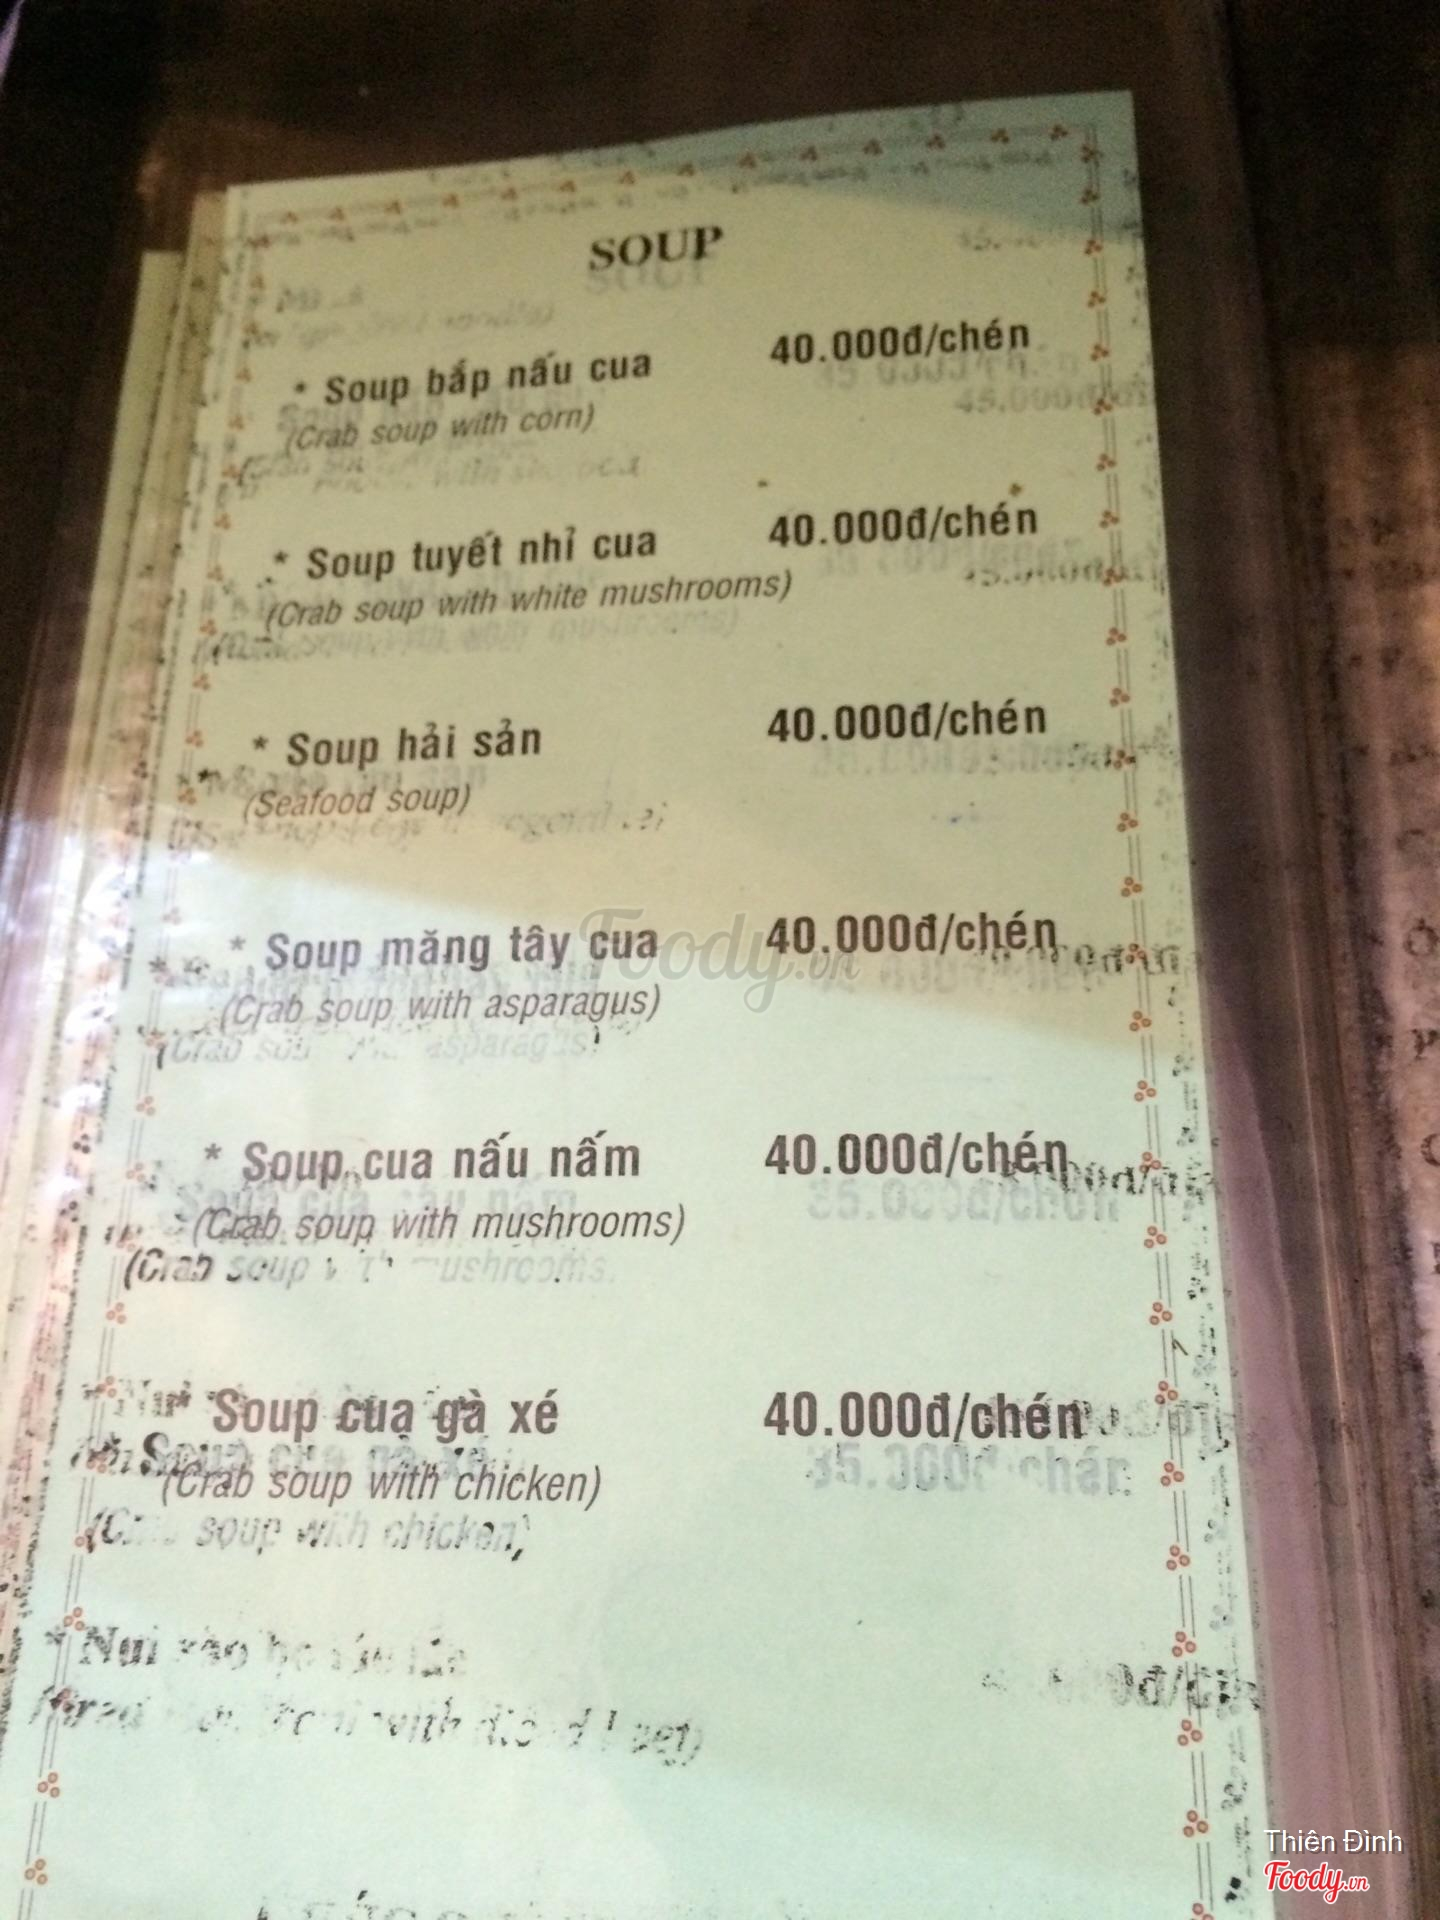 SOUP
* Soup bắp nấu cua 40.000đ/chén
(Crab soup with corn)
* Soup tuyết nhỉ cua 40.000đ/chén
(Crab soup with white mushrooms)
* Soup hải sản 40.000đ/chén
(Seafood soup)
* Soup măng tây cua 40.000đ/chén
(Crab soup with asparagus)
* Soup cua nấu nấm 40.000đ/chén
(Crab soup with mushrooms)
* Soup cua gà xé 40.000đ/chén
(Crab soup with chicken)
Foody.vn
Thiên Đình
Foody.vn